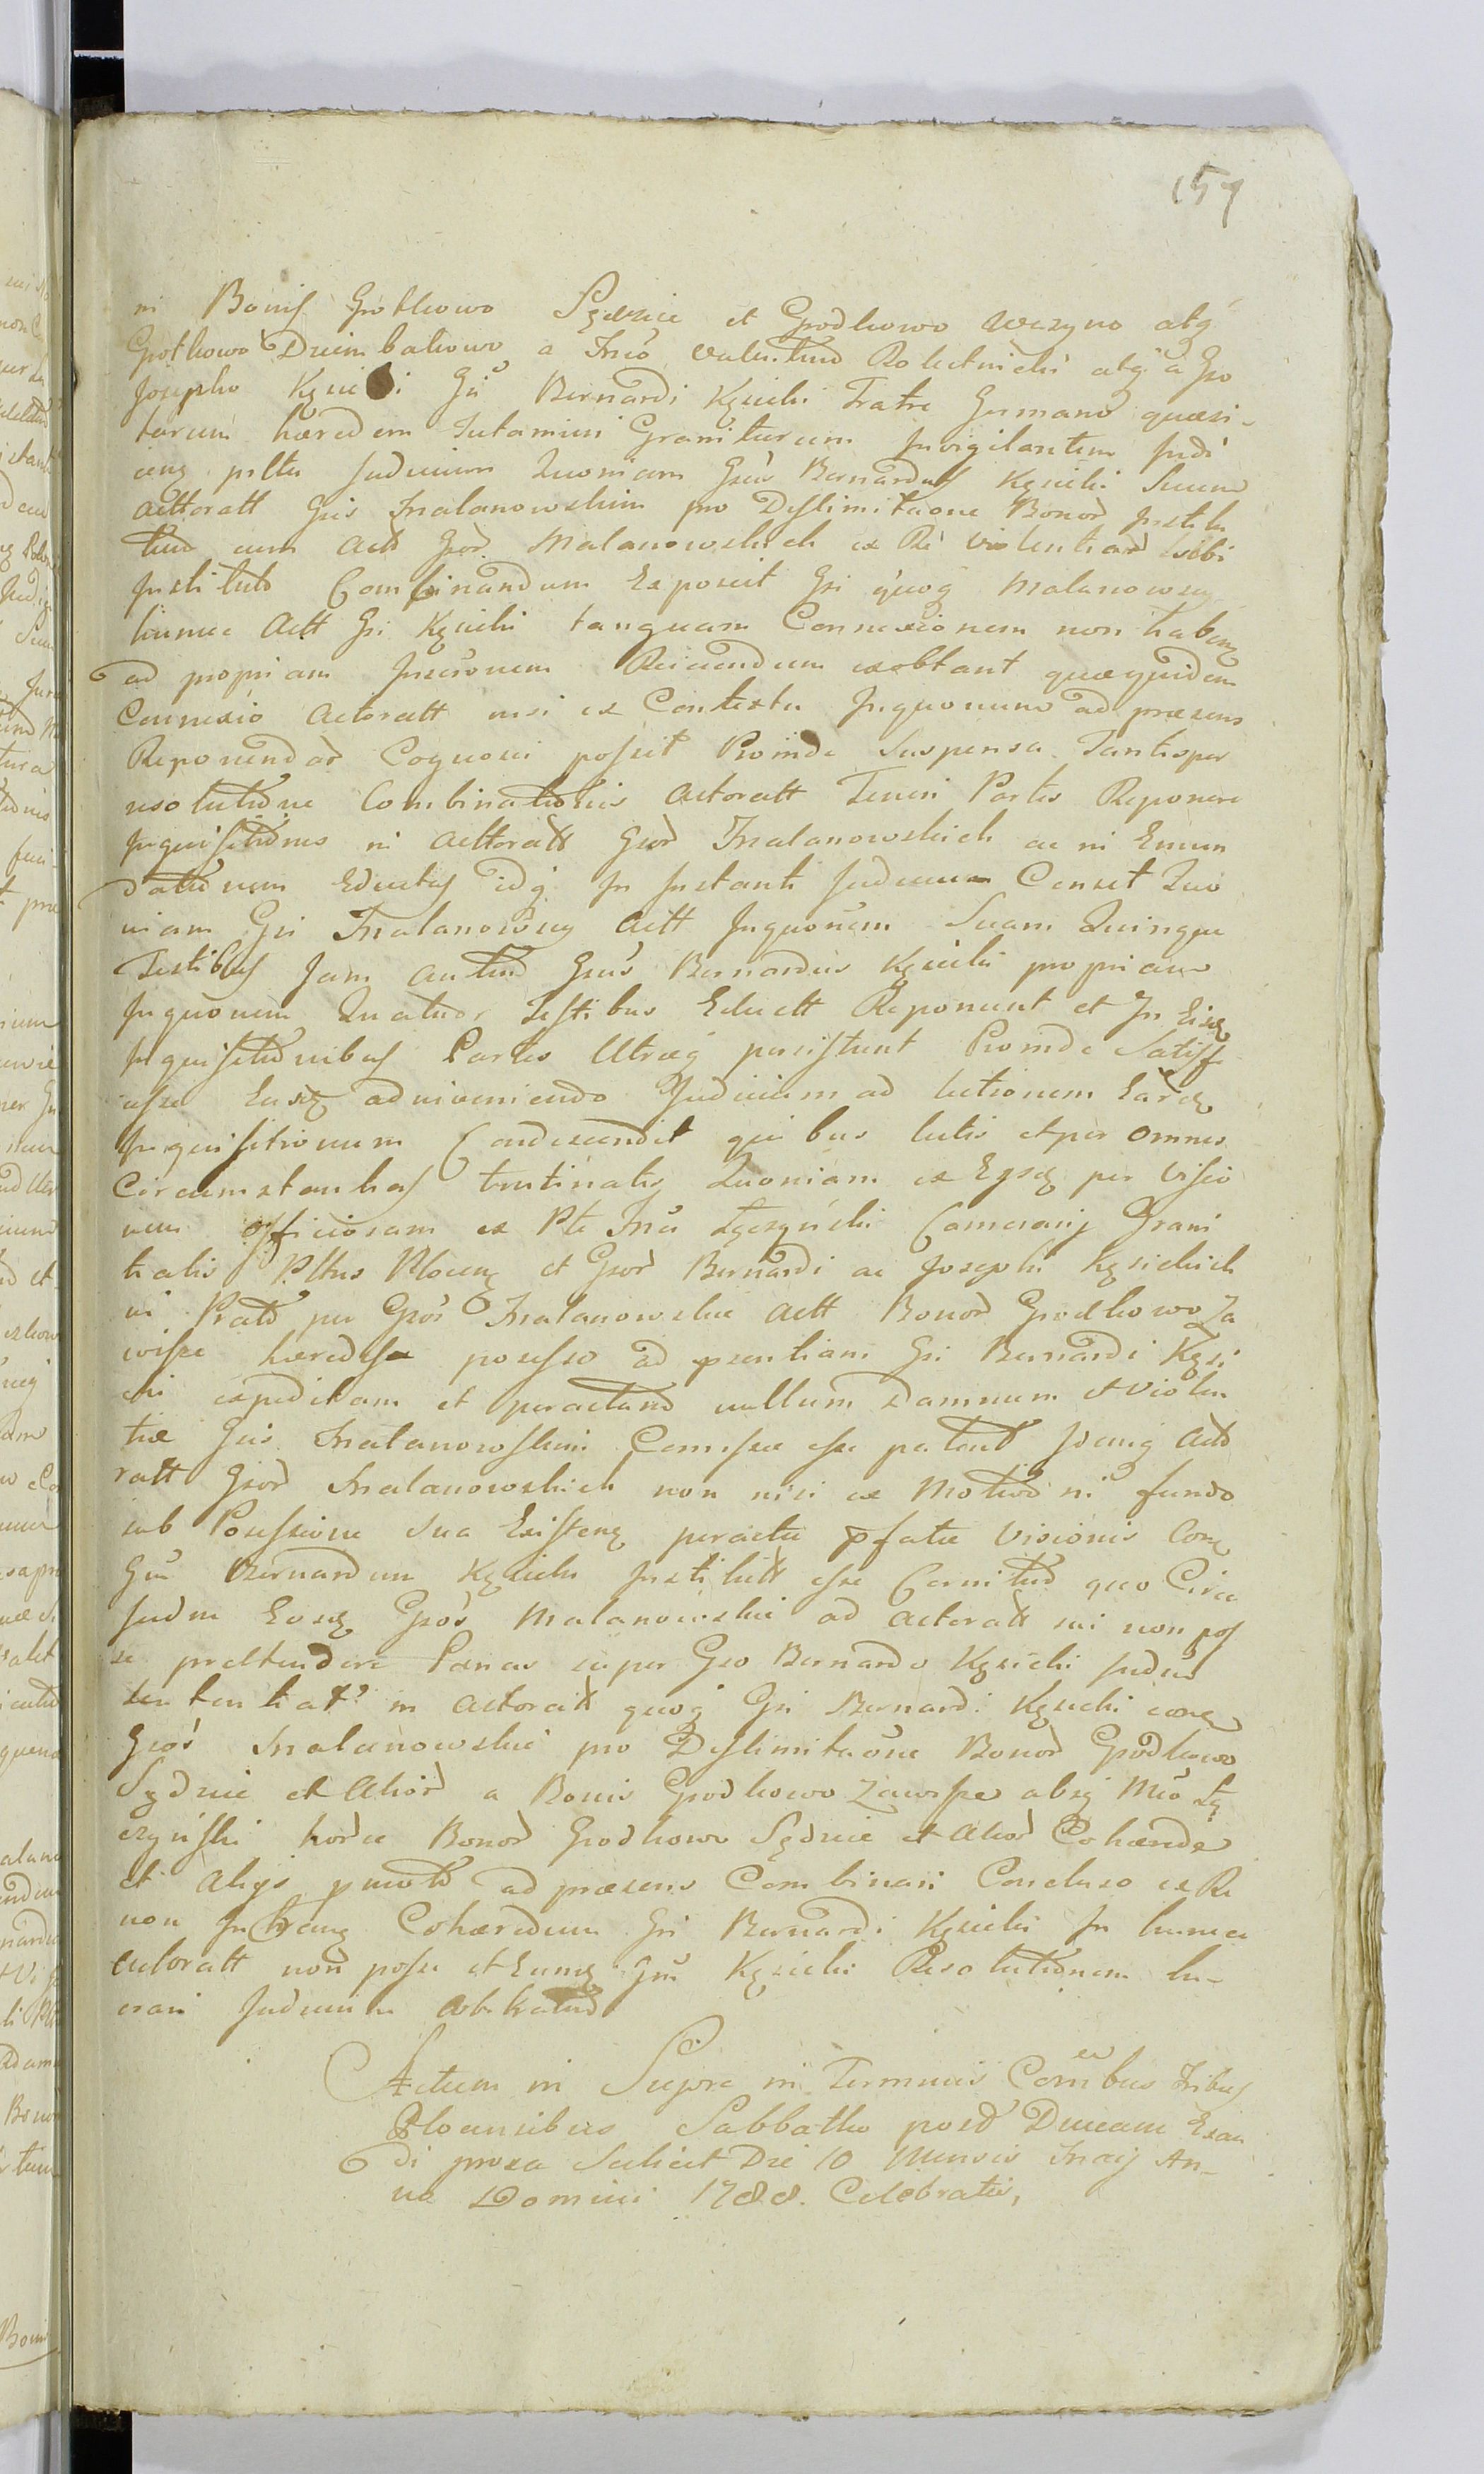 159
in Bonis Grotkowo Sędzice et Grodkowo Wczyno atq
Grotkowo Dziembakowo a Mco Valentino Roletnicki atq a Gso
Josepho Kęsicki Gsi Bernardi Kęsicki Fratre Germano quæsi-
torum hæredem Tutamini Granitierum Invigilantem Judi
cenz pltu Judicium Quoniam Gsus Bernardus Kęsicki Suum
Acttoratt Gsis Malanowskim pro Dislimitaone Bonor Institu
tum cum Acto Gsor Malanowskich ex Re violentiar sibi
Instituto Combinandum Exposcit Gsi quoq Malanowscy
hunce Actt Gsi Kęsicki tanquam Connexionem non haben
ad propriam Insconem Reiiciendum exobtant quæquidem
Connexio Actoratt nisi ex Contextu Inquonum ad præsens
Reponendar Cognosci possit Proinde Suspensa Tantisper
resolutione Combinationis Actoratt Teneri Partes Reponere
Inquisitiones in Acttoratt Gsor Malanowskich ac in Emun
dationem Eductas idq In Instanti Judicium Censet Quo
niam Gsi Malanowscy Actt Inquonem Suam Quinque
Testibus Jam autem Gsus Bernardus Kęsicki propriam
Inquonem Quatuor Testibus Eductt Reponunt et In Eisq
Inquisitionibus Partes Utræq persistunt Proinde Satisf
esse Eusq adinveniendo Judicium ad lectionem Earq
Inquisitionum Condescendit quibus lectis et per omnes
Circumstantias trutinatis Quoniam ex Eysq per Visio
nem officiosam ex Pte Mci Łęczyński Camerarij Grani
tialis Pltus Plocenz et Gsor Bernardi ac Josephi Kęsickich
in Prato per Gsos Malanowskie Actt Bonor Grodkowo Za
wisze hæredes possesso ad pzentiam Gsi Bernardi Kęsi
cki expeditam et peractam nullum Damnum et violen
tiæ Gsis Malanowskim Comissæ esse patent Idemq Acto
ratt Gsor Malanowskich non nisi ex Motivo in fundo
sub Posessione sua Existenz peractæ pfatæ Visionis Conq
Gsu Bernardum Kęsicki Institutt esse Cernitur quo Circa
Judm Eosq Gsos Malanowskie ad Actoratt sui non pos
se prætendere Pænas super Gso Bernardo Kęsicki Judiu
sententiat in Actoratt quoq Gsi Bernardi Kęsicki conq
Gsos Malanowskie pro Dislimitaone Bonor Grodkowo
Sędzice et Alior a Bonis Grodkowo Zawisze absq Mco Łę
czyński hærde Bonor Grodkowo Sędzice et Alior Cohærde
et Alijs pmoto ad præsens Combinari Concluso ex Re
non Cohæredum Gsi Bernardi Kęsicki In hunce
Actoratt non posse et Eumq Gsu Kęsicki Resolutionem lu-
crari Judicium Arbitratur
Actum in Supra in Terminis Comibus Tribus
Plocensibus Sabbatho post Dnicam Exau
di proxa Scilicet Die 10 Mensis Maij An-
no Domini 1788. Celebratis,